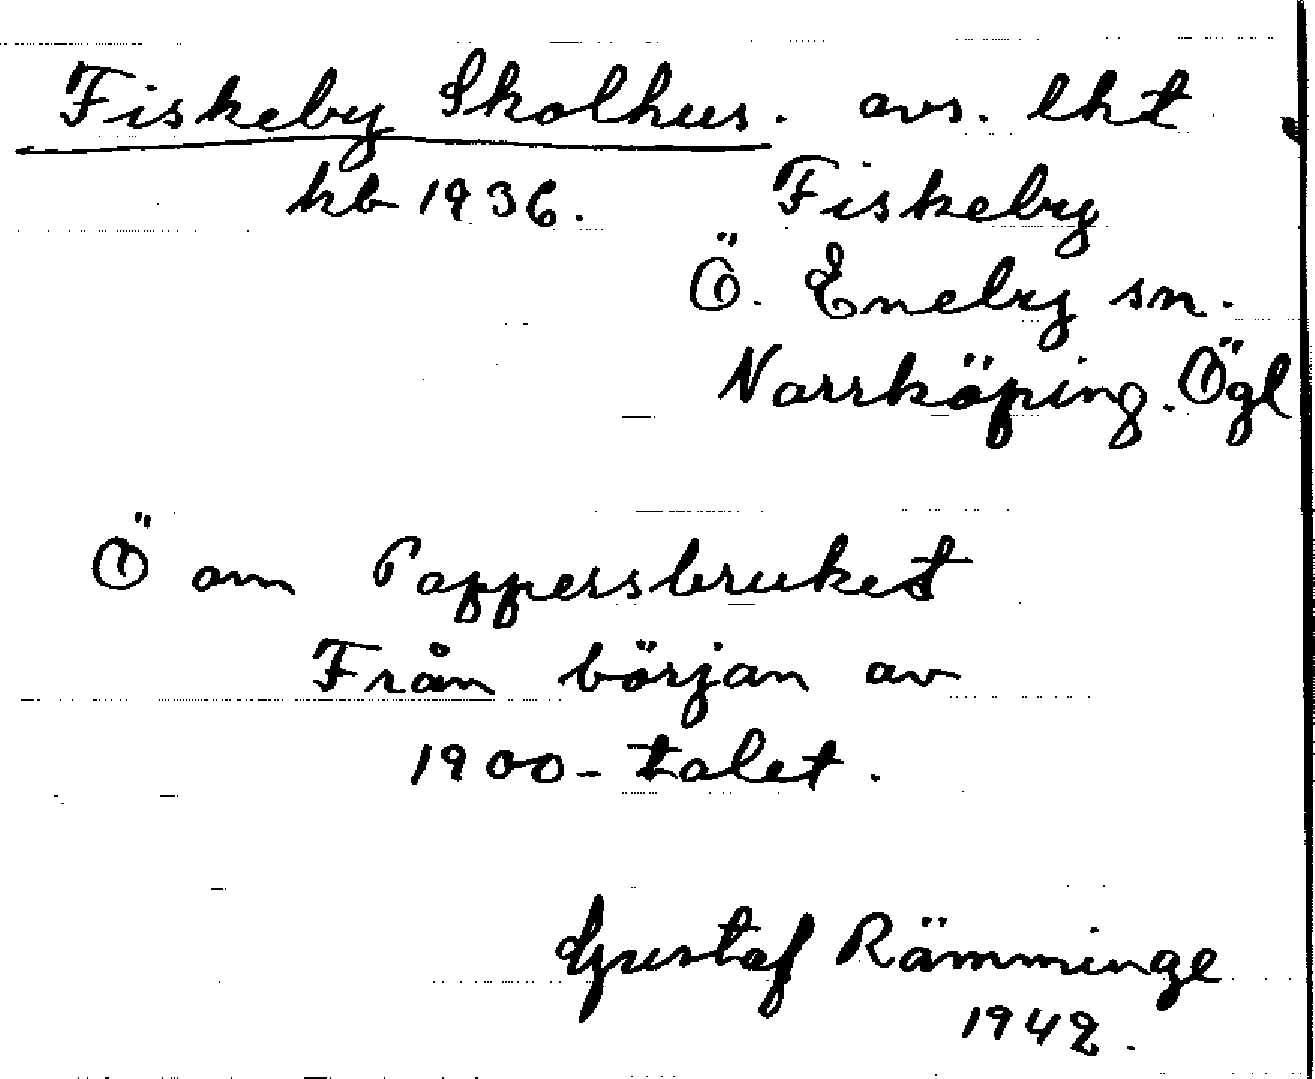 Fiskeby Skolhus. avs. lht
kb 1936. Fiskeby
Ö. Eneby sn.
Norrköping. Ögl
Ö om Pappersbruket
Från början av
1900-talet.
Gustaf Rämminge
1942.